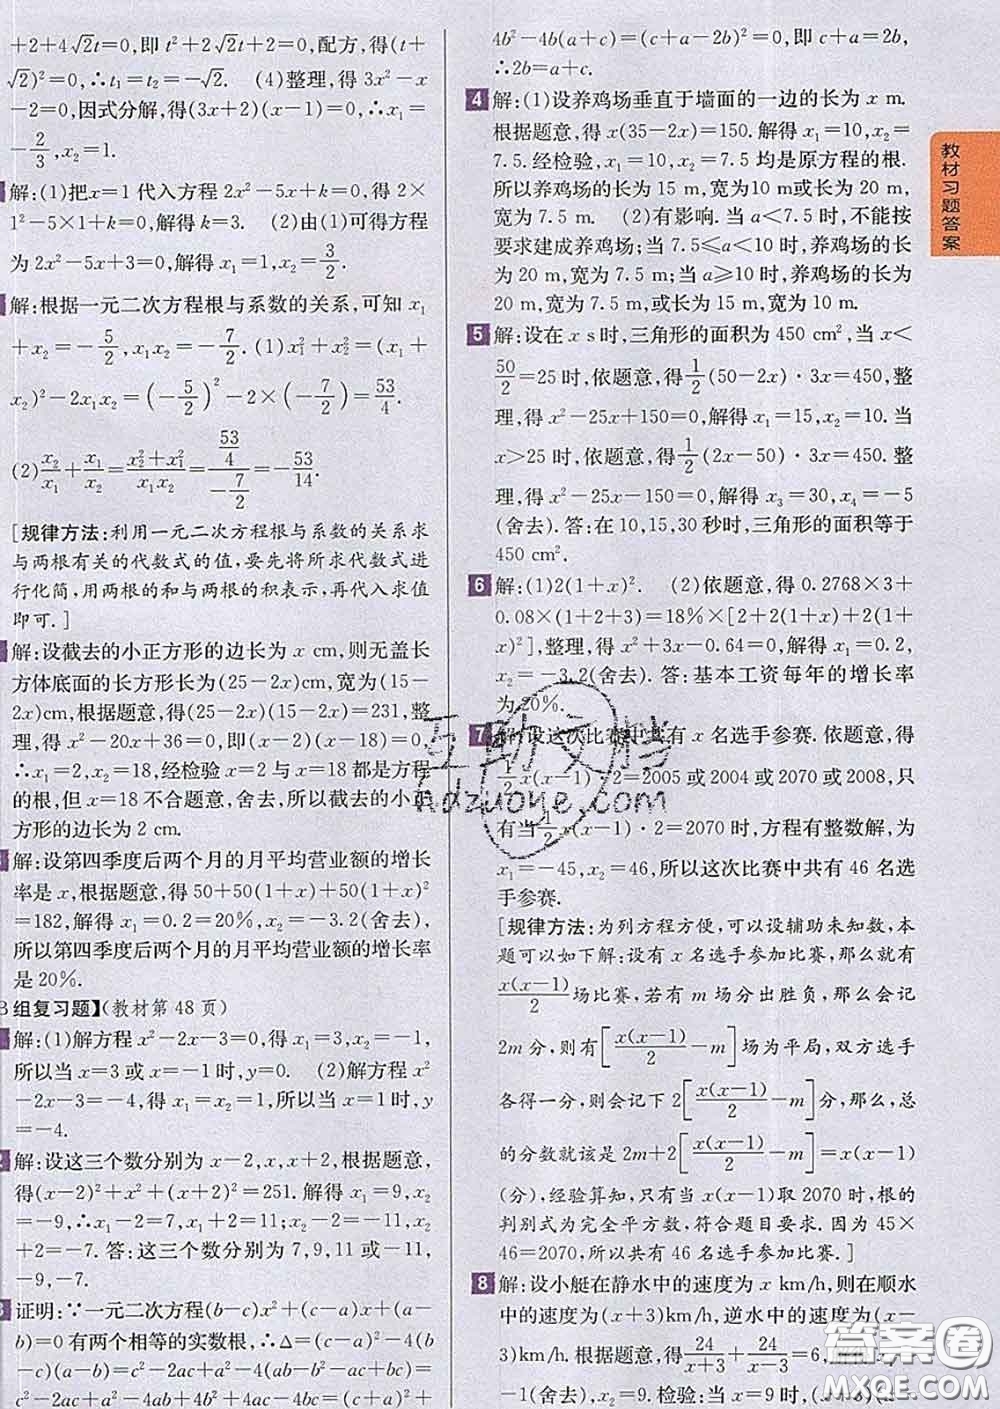 +2+4√2t=0,即 t²+2√2t+2=0,配方,得(t+
√2)²=0,∴t₁=t₂=-√2. (4)整理,得 3x²-x
-2=0,因式分解,得(3x+2)(x-1)=0,∴x₁=
-2/3,x₂=1.
解:(1)把x=1代入方程 2x²-5x+k=0,得 2×
1²-5×1+k=0,解得 k=3. (2)由(1)可得方程
为 2x²-5x+3=0,解得 x₁=1,x₂=3/2.
解:根据一元二次方程根与系数的关系,可知 x₁
+x₂=-5/2,x₁x₂=-7/2. (1)x₁²+x₂²=(x₁+
x₂)²-2x₁x₂=(-5/2)²-2×(-7/2)=53/4.
(2)x₂/x₁+x₁/x₂=(x₂²+x₁²)/(x₁x₂)=(53/4)/(-7/2)=-53/14.
[规律方法:利用一元二次方程根与系数的关系求
与两根有关的代数式的值,要先将所求代数式进
行化简,用两根的和与两根的积表示,再代入求值
即可.]
解:设截去的小正方形的边长为 x cm,则无盖长
方体底面的长方形长为(25-2x)cm,宽为(15-
2x)cm,根据题意,得(25-2x)(15-2x)=231,整
理,得 x²-20x+36=0,即(x-2)(x-18)=0,
∴x₁=2,x₂=18,经检验 x=2 与 x=18 都是方程
的根,但 x=18 不合题意,舍去,所以截去的小正
方形的边长为 2 cm.
解:设第四季度后两个月的月平均营业额的增长
率是 x,根据题意,得 50+50(1+x)+50(1+x)²
=182,解得 x₁=0.2=20%,x₂=-3.2(舍去),
所以第四季度后两个月的月平均营业额的增长率
是 20%.
B组复习题】(教材第 48 页)
解:(1)解方程 x²-2x-3=0,得 x₁=3,x₂=-1,
所以当 x=3或 x=-1时,y=0. (2)解方程 x²
-2x-3=-4,得 x₁=x₂=1,所以当 x=1时,y
=-4.
解:设这三个数分别为 x-2,x,x+2,根据题意,
得(x-2)²+x²+(x+2)²=251. 解得 x₁=9,x₂
=-9,∴x₁-2=7,x₁+2=11;x₂-2=-11,x₂
+2=-7. 答:这三个数分别为 7,9,11 或-11,
-9,-7.
3 证明:∵一元二次方程(b-c)x²+(c-a)x+(a-
b)=0 有两个相等的实数根,∴Δ=(c-a)²-4(b
-c)(a-b)=c²-2ac+a²-4(ab-b²-ac+bc)=
c²-2ac+a²-4ab+4b²+4ac-4bc=(a+c)²+
4b²-4b(a+c)=(c+a-2b)²=0,即 c+a=2b,
∴2b=a+c.
4 解:(1)设养鸡场垂直于墙面的一边的长为 x m.
根据题意,得 x(35-2x)=150. 解得 x₁=10,x₂=
7.5. 经检验,x₁=10,x₂=7.5 均是原方程的根.
所以养鸡场的长为 15 m,宽为10m或长为 20 m,
宽为 7.5 m. (2)有影响. 当 a<7.5时,不能按
要求建成养鸡场;当 7.5≤a<10 时,养鸡场的长
为 20 m,宽为 7.5 m;当 a≥10 时,养鸡场的长为
20 m,宽为 7.5 m 或长为 15 m,宽为 10 m.
5 解:设在 x s时,三角形的面积为 450 cm²,当 x<
50/2=25 时,依题意,得1/2(50-2x)·3x=450,整
理,得 x²-25x+150=0,解得 x₁=15,x₂=10. 当
x>25 时,依题意,得1/2(2x-50)·3x=450. 整
理,得 x²-25x-150=0,解得 x₃=30,x₄=-5
(舍去). 答:在 10,15,30 秒时,三角形的面积等于
450 cm².
6 解:(1)2(1+x)². (2)依题意,得 0.2768×3+
0.08×(1+2+3)=18%×[2+2(1+x)+2(1+
x)²],整理,得 x²+3x-0.64=0,解得 x₁=0.2,
x₂=-3.2(舍去). 答:基本工资每年的增长率
为 20%.
7 解:设这次比赛中共有 x 名选手参赛. 依题意,得
1/2x(x-1)·2=2005 或 2004 或 2070 或 2008,只
有当1/2x(x-1)·2=2070 时,方程有整数解,为
x₁=-45,x₂=46,所以这次比赛中共有 46 名选
手参赛.
[规律方法:为列方程方便,可以设辅助未知数,本
题可以如下解:设有 x 名选手参加比赛,那么就有
x(x-1)/2场比赛,若有 m 场分出胜负,那么会记
2m 分,则有[x(x-1)/2-m]场为平局,双方选手
各得一分,则会记下 2[x(x-1)/2-m]分,那么,总
的分数就该是 2m+2[x(x-1)/2-m]=x(x-1)
(分),经验算知,只有当 x(x-1)取 2070 时,根的
判别式为完全平方数,符合题目要求. 因为 45×
46=2070,所以共有 46 名选手参加比赛.]
8 解:设小艇在静水中的速度为 x km/h,则在顺水
中的速度为(x+3)km/h,逆水中的速度为(x-
3)km/h. 根据题意,得24/(x+3)+24/(x-3)=6,
-1(舍去),x₂=9. 检验:当 x=9 时,(x+3)(x-
教材习题答案
互助文档
hdzuoye.com
答案圈
MXQE.COM